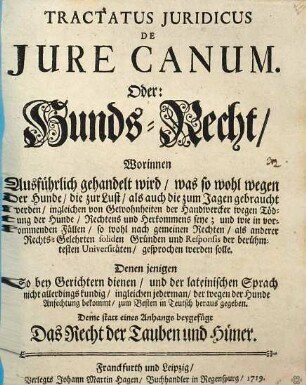 TRACTATUS JURIDICUS
DE
JURE CANUM.
Oder:
Hunds-Recht/
Worinnen
Ausführlich gehandelt wird/ was so wohl wegen
der Hunde/ die zur Lust/ als auch die zum Jagen gebraucht
werden/ ingleichen von Gewohnheiten der Handwercker wegen Töd-
tung der Hunde/ Rechtens und Herkommens seye; und wie in vor-
kommenden Fällen/ so wohl nach gemeinen Rechten/ als anderer
Rechts-Gelehrten soliden Gründen und Responsis der berühm-
testen Universitäten/ gesprochen werden solle.
Denen jenigen
So bey Gerichtern dienen/ und der lateinischen Sprach
nicht allerdings kundig/ ingleichen jederman/ der wegen der Hunde
Anfechtung bekommt/ zum Besten in Teutsch heraus gegeben.
Deme statt eines Anhangs beygefügt
Das Recht der Tauben und Hüner.
Franckfurth und Leipzig/
Verlegts Johann Martin Hagen/ Buchhändler in Regenspurg/ 1719.